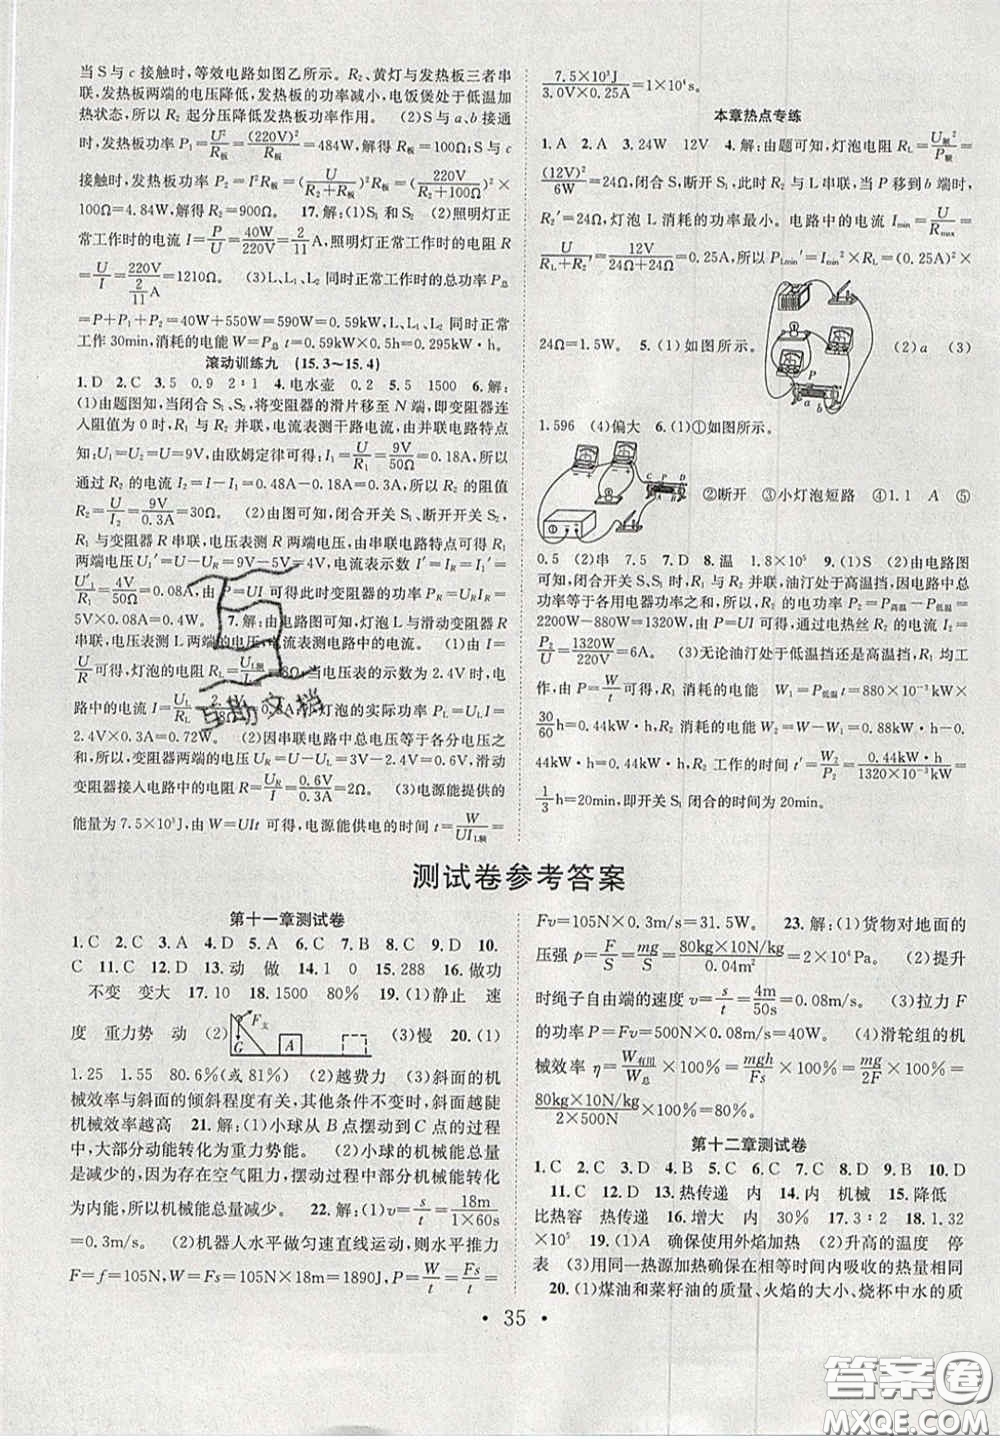 当 S 与 c 接触时,等效电路如图乙所示。R₂、黄灯与发热板三者串
联,发热板两端的电压降低,发热板的功率减小,电饭煲处于低温加
热状态,所以 R₂ 起分压降低发热板功率作用。 (2)S 与 a、b 接通
时,发热板功率 P₁=U²/R板=(220V)²/R板=484W,解得 R板=100Ω;S 与 c
接触时,发热板功率 P₂=I²R板=(U/(R₂+R板))²R板=(220V/(R₂+100Ω))²×
100Ω=4.84W,解得 R₂=900Ω。 17.解:(1)S₁ 和 S₂ (2)照明灯正
常工作时的电流 I=P/U=40W/220V=2/11A,照明灯正常工作时的电阻 R
=U/I=220V/(2/11 A)=1210Ω。 (3)L、L₁、L₂ 同时正常工作时的总功率 P总
=P+P₁+P₂=40W+550W=590W=0.59kW,L、L₁、L₂ 同时正常
工作 30min,消耗的电能 W=P总t=0.59kW×0.5h=0.295kW·h。
滚动训练九 (15.3~15.4)
1.D 2.C 3.5 0.9 2∶1 4.电水壶 0.2 5.5 1500 6.解:
(1)由题图知,当闭合 S₁、S₂,将变阻器的滑片移至 N 端,即变阻器连
入阻值为 0 时,R₁ 与 R₂ 并联,电流表测干路电流,由并联电路特点
知:U₁=U₂=U=9V,由欧姆定律可得:I₁=U/R₁=9V/50Ω=0.18A,所以
通过 R₂ 的电流 I₂=I-I₁=0.48A-0.18A=0.3A,所以 R₂ 的阻值
R₂=U/I₂=9V/0.3A=30Ω。 (2)由图可知,闭合开关 S₁、断开开关 S₂,
R₁ 与滑动变阻器 R 串联,电压表测 R 两端电压,由串联电路特点可得 R₁
两端电压 U₁′=U-U′=9V-5V=4V,电流表示数 I′=I₁′=
U₁′/R₁=4V/50Ω=0.08A,由 P=UI 可得此时变阻器的功率 P_R=U_RI_R=
5V×0.08A=0.4W。 7.解:由电路图可知,灯泡与滑动变阻器 R
串联,电压表测 L 两端的电压,电流表测电路中的电流。 (1)由 I=
U/R 可得,灯泡的电阻 R_L=,当电压表的示数为 2.4V 时,电
路中的电流 I=U_L/R_L=,灯泡的实际功率 P_L=U_LI=
2.4V×0.3A=0.72W。 (2)因串联电路中总电压等于各分电压之
和,所以,变阻器两端的电压 U_R=U-U_L=3V-2.4V=0.6V,滑动
变阻器接入电路中的电阻 R=U_R/I=0.6V/0.3A=2Ω。 (3)电源能提供的
能量为 7.5×10³J,由 W=UIt 可得,电源能供电的时间 t=W/UI_L额=
7.5×10³J/(3.0V×0.25A)=1×10⁴s。
本章热点专练
1.A 2.A 3.24W 12V 4.解:由题可知,灯泡电阻 R_L=U额²/P额=
(12V)²/6W=24Ω,闭合 S,断开 S₁,此时 R₂ 与 L 串联,当 P 移到 b 端时,
R₂′=24Ω,灯泡 L 消耗的功率最小。电路中的电流 Imin=U/Rmax=
U/(R_L+R₂′)=12V/(24Ω+24Ω)=0.25A,所以 P_Lmin′=Imin²×R_L=(0.25A)²×
24Ω=1.5W。 5.(1)如图所示。 (2)a (3)
P
a b
1.596 (4)偏大 6.(1)①如图所示。
C P D
②断开 ③小灯泡短路 ④1.1 A ⑤
0.5 (2)串 7.5 7.D 8.温 1.8×10⁵ 9.(1)S₂ (2)由电路图
可知,闭合开关 S、S₁ 时,R₁ 与 R₂ 并联,油汀处于高温挡,因电路中总
功率等于各用电器功率之和,所以,R₂ 的电功率 P₂=P高温-P低温=
2200W-880W=1320W,由 P=UI 可得,通过电热丝 R₂ 的电流 I₂=
P₂/U=1320W/220V=6A。 (3)无论油汀处于低温挡还是高温挡,R₁ 均工
作,由 P=W/t 可得,R₁ 消耗的电能 W₁=P₁t=880×10⁻³kW×
30/60h=0.44kW·h,R₂ 消耗的电能 W₂=W-W₁=0.88kW·h-
0.44kW·h=0.44kW·h,R₂ 工作的时间 t′=W₂/P₂=0.44kW·h/(1320×10⁻³kW)=
1/3h=20min,即开关 S₁ 闭合的时间为 20min。
测试卷参考答案
第十一章测试卷
1.C 2.C 3.A 4.D 5.A 6.C 7.C 8.D 9.D 10.
C 11.C 12.D 13.动 做 14.1 0 15.288 16.做功
不变 变大 17.10 18.1500 80% 19.(1)静止 速
度 重力势 动 (2) (3)慢 20.(1)
F支
G A
1.25 1.55 80.6%(或 81%) (2)越费力 (3)斜面的机
械效率与斜面的倾斜程度有关,其他条件不变时,斜面越陡
机械效率越高 21.解:(1)小球从 B 点摆动到 C 点的过程
中,大部分动能转化为重力势能。 (2)小球的机械能总量
是减少的,因为存在空气阻力,摆动过程中部分机械能转化
为内能,所以机械能总量减少。 22.解:(1)v=s/t=18m/(1×60s)
=0.3m/s。 (2)机器人水平做匀速直线运动,则水平推力
F=f=105N,W=Fs=105N×18m=1890J,P=W/t=Fs/t=
Fv=105N×0.3m/s=31.5W。 23.解:(1)货物对地面的
压强 p=F/S=mg/S=80kg×10N/kg/0.04m²=2×10⁴Pa。 (2)提升
时绳子自由端的速度 v=s/t=4m/50s=0.08m/s。 (3)拉力 F
的功率 P=Fv=500N×0.08m/s=40W。 (4)滑轮组的机
械效率 η=W有用/W总×100%=mgh/Fs×100%=mg/2F×100%=
80kg×10N/kg/(2×500N)×100%=80%。
第十二章测试卷
1.C 2.C 3.D 4.B 5.D 6.C 7.C 8.D 9.B 10.D
11.C 12.D 13.热传递 内 14.内 机械 15.降低
比热容 热传递 16.增大 内 30% 17.3∶2 18.1.32
×10⁵ 19.(1)A 确保使用外焰加热 (2)升高的温度 停
表 (3)用同一热源加热确保在相等时间内吸收的热量相同
20.(1)煤油和菜籽油的质量、火焰的大小、烧杯中水的质
• 35 •
互助文档
答案圈
MXQE.COM